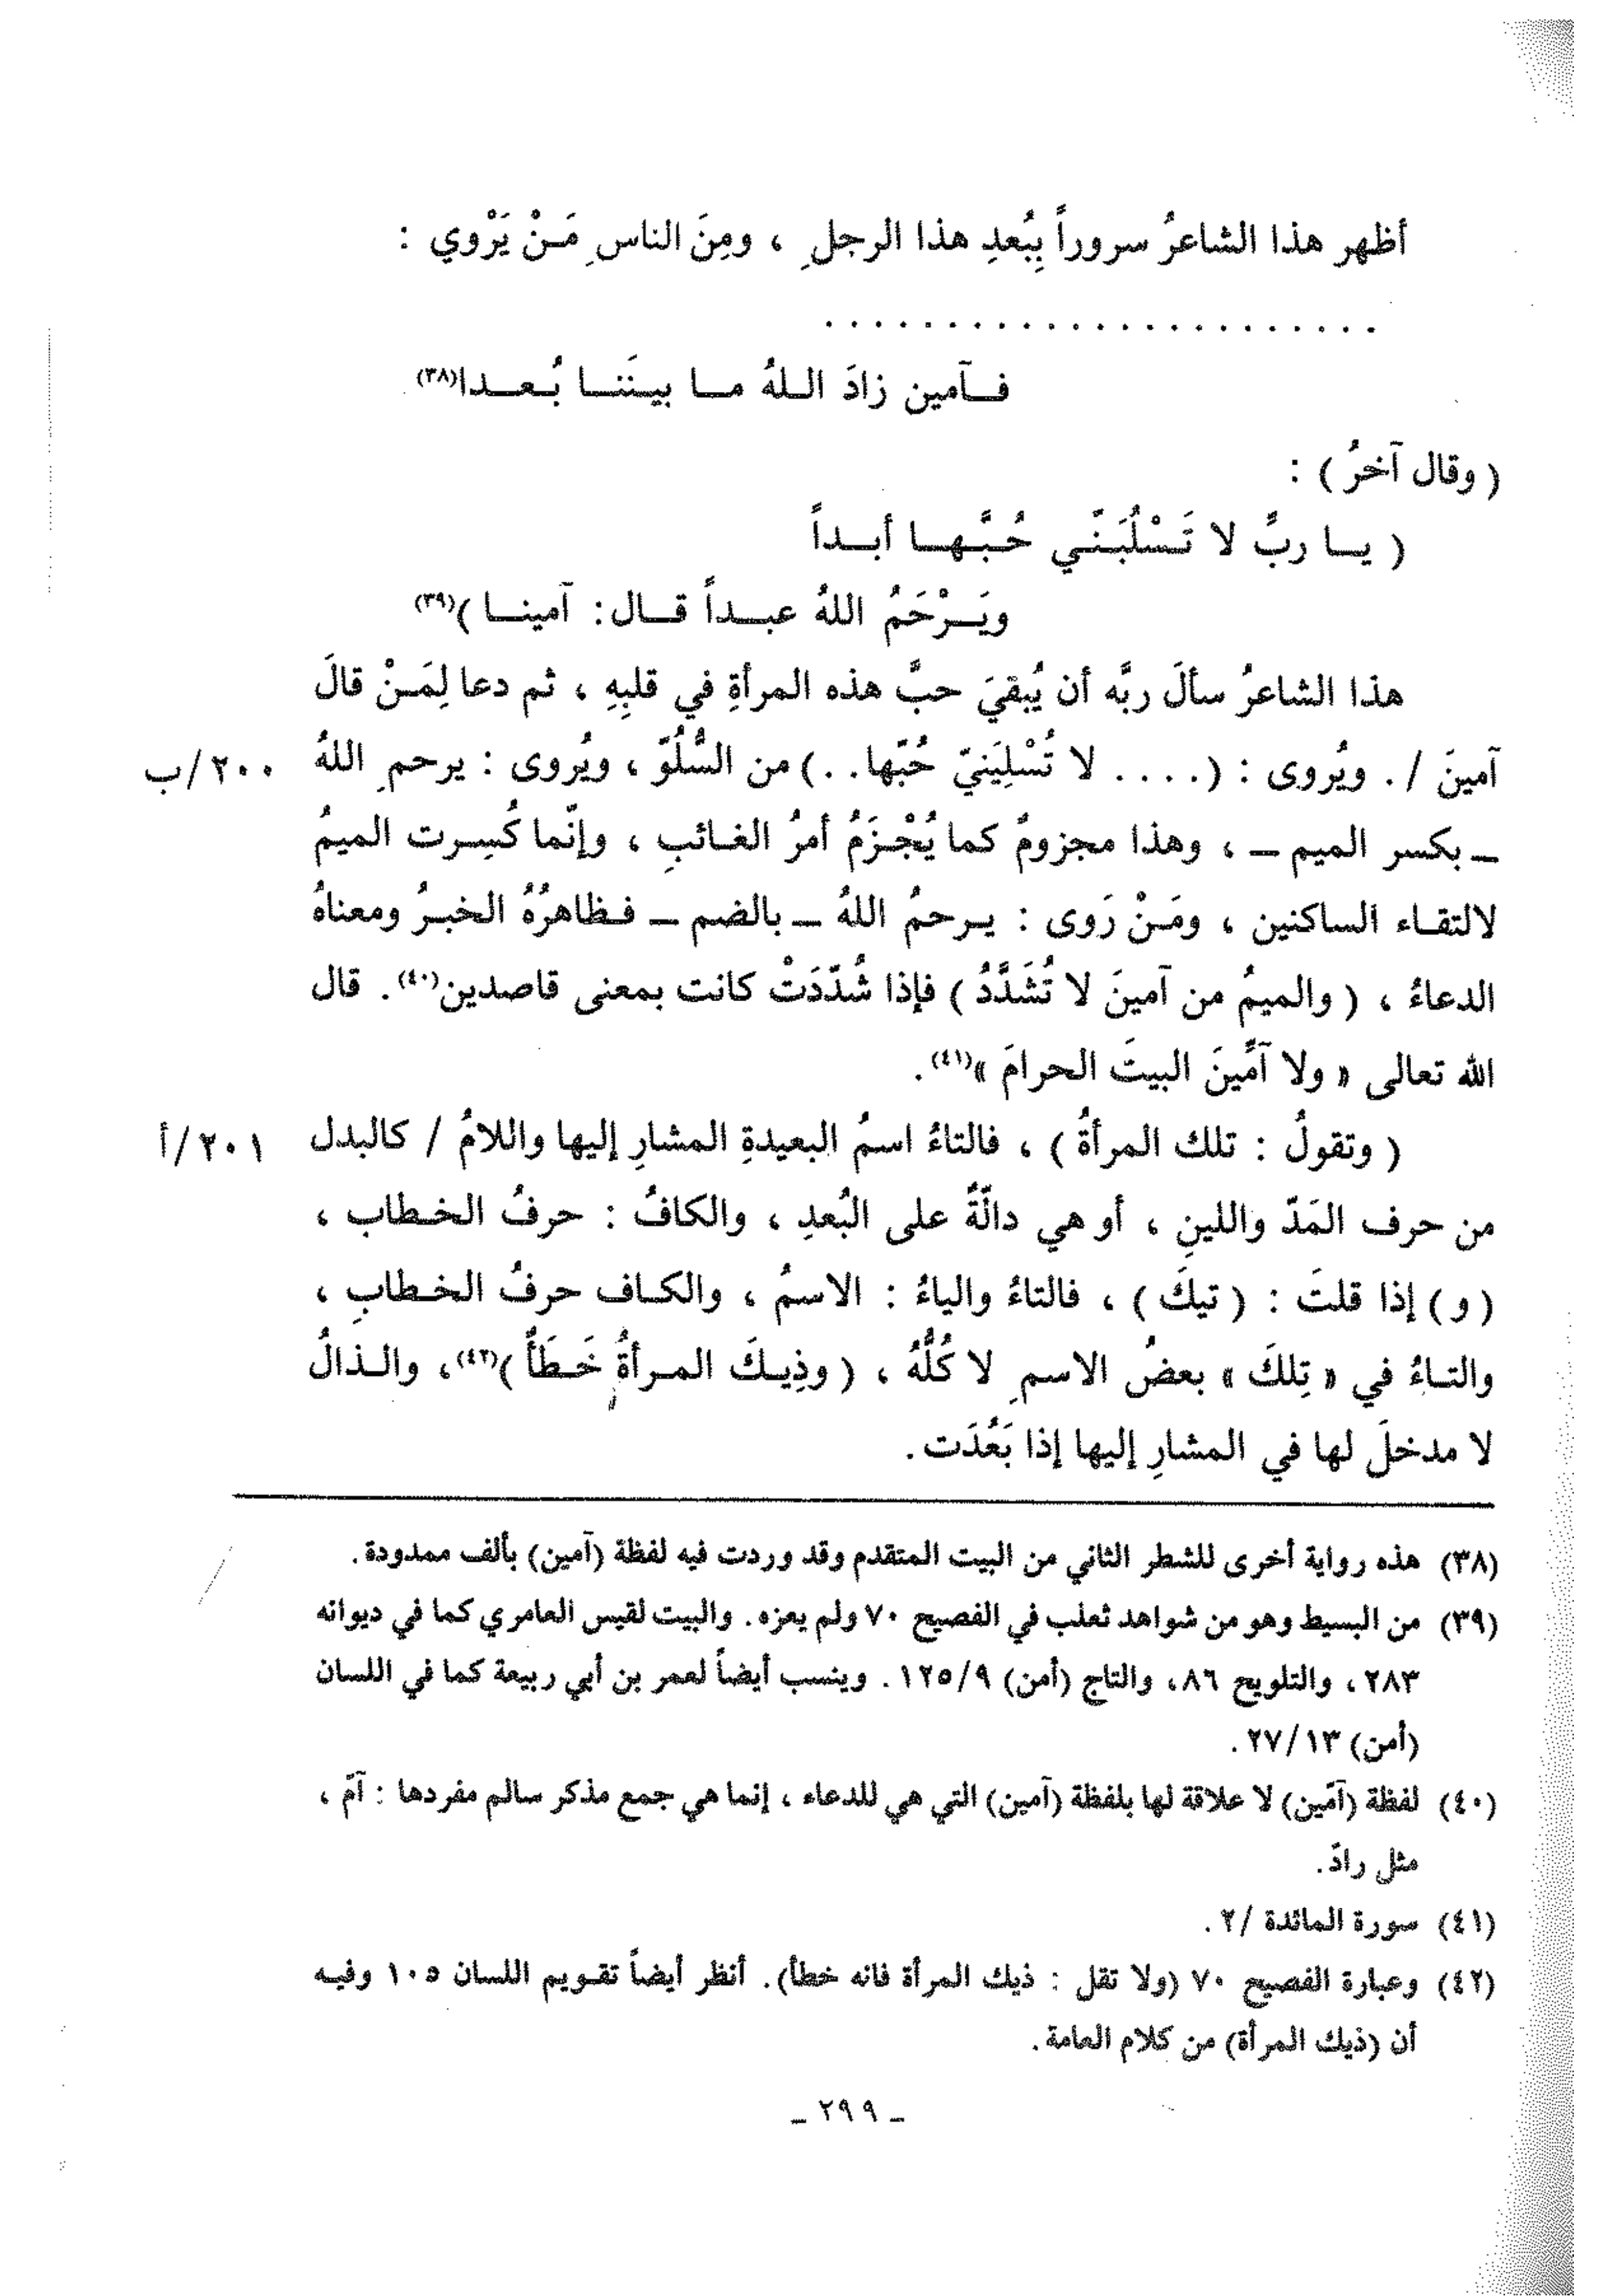 أظهر هذا الشاعرُ سروراً بِبُعدِ هذا الرجلِ ، ومِنَ الناسِ مَنْ يَرْوي :
. . . . . . . . . . . . . . . . . . . . . . .
فـآمين زادَ اللهُ مـا بينَنـا بُعـدا(٣٨)
( وقال آخرُ ) :
( يـا ربِّ لا تَسْلُبَنّي حُبَّهـا أبـداً
ويَـرْحَمُ اللهُ عبـداً قـال: آمينـا )(٣٩)
هذا الشاعرُ سألَ ربَّه أن يُبقيَ حبَّ هذه المرأةِ في قلبِهِ ، ثم دعا لِمَنْ قالَ
آمينَ / . ويُروى : ( . . . . لا تُسْلِيَنيّ حُبّها . . ) من السُّلُوّ ، ويُروى : يرحمِ اللهُ ٢٠٠/ب
ـ بكسر الميم ـ ، وهذا مجزومٌ كما يُجْزَمُ أمرُ الغائبِ ، وإنّما كُسِرت الميمُ
لالتقـاء الساكنين ، ومَـنْ رَوى : يـرحمُ اللهُ ـ بالضم ـ فـظاهرُهُ الخبـرُ ومعناهُ
الدعاءُ ، ( والميمُ من آمينَ لا تُشَدَّدُ ) فإذا شُدّدَتْ كانت بمعنى قاصدين(٤٠). قال
الله تعالى « ولا آمِّينَ البيتَ الحرامَ »(٤١).
( وتقولُ : تلك المرأةُ ) ، فالتاءُ اسمُ البعيدةِ المشارِ إليها واللامُ / كالبدل ٢٠١/أ
من حرف المَدّ واللينِ ، أو هي دالّةٌ على البُعدِ ، والكافُ : حرفُ الخـطاب ،
( و ) إذا قلتَ : ( تيكَ ) ، فالتاءُ والياءُ : الاسمُ ، والكـاف حرفُ الخـطابِ ،
والتـاءُ في « تِلكَ » بعضُ الاسمِ لا كُلُّهُ ، ( وذِيـكَ المـرأةُ خَـطَأٌ )(٤٢)، والـذالُ
لا مدخلَ لها في المشارِ إليها إذا بَعُدَت .
(٣٨) هذه رواية أخرى للشطر الثاني من البيت المتقدم وقد وردت فيه لفظة (آمين) بألف ممدودة .
(٣٩) من البسيط وهو من شواهد ثعلب في الفصيح ٧٠ ولم يعزه. والبيت لقيس العامري كما في ديوانه
٢٨٣ ، والتلويح ٨٦، والتاج (أمن) ١٢٥/٩ . وينسب أيضاً لعمر بن أبي ربيعة كما في اللسان
(أمن) ٢٧/١٣ .
(٤٠) لفظة (آمّين) لا علاقة لها بلفظة (آمين) التي هي للدعاء ، إنما هي جمع مذكر سالم مفردها : آمّ ،
مثل رادّ.
(٤١) سورة المائدة /٢ .
(٤٢) وعبارة الفصيح ٧٠ (ولا تقل : ذيك المرأة فانه خطأ). أنظر أيضاً تقـويم اللسان ١٠٥ وفيـه
أن (ذيك المرأة) من كلام العامة .
ـ ٢٩٩ ـ